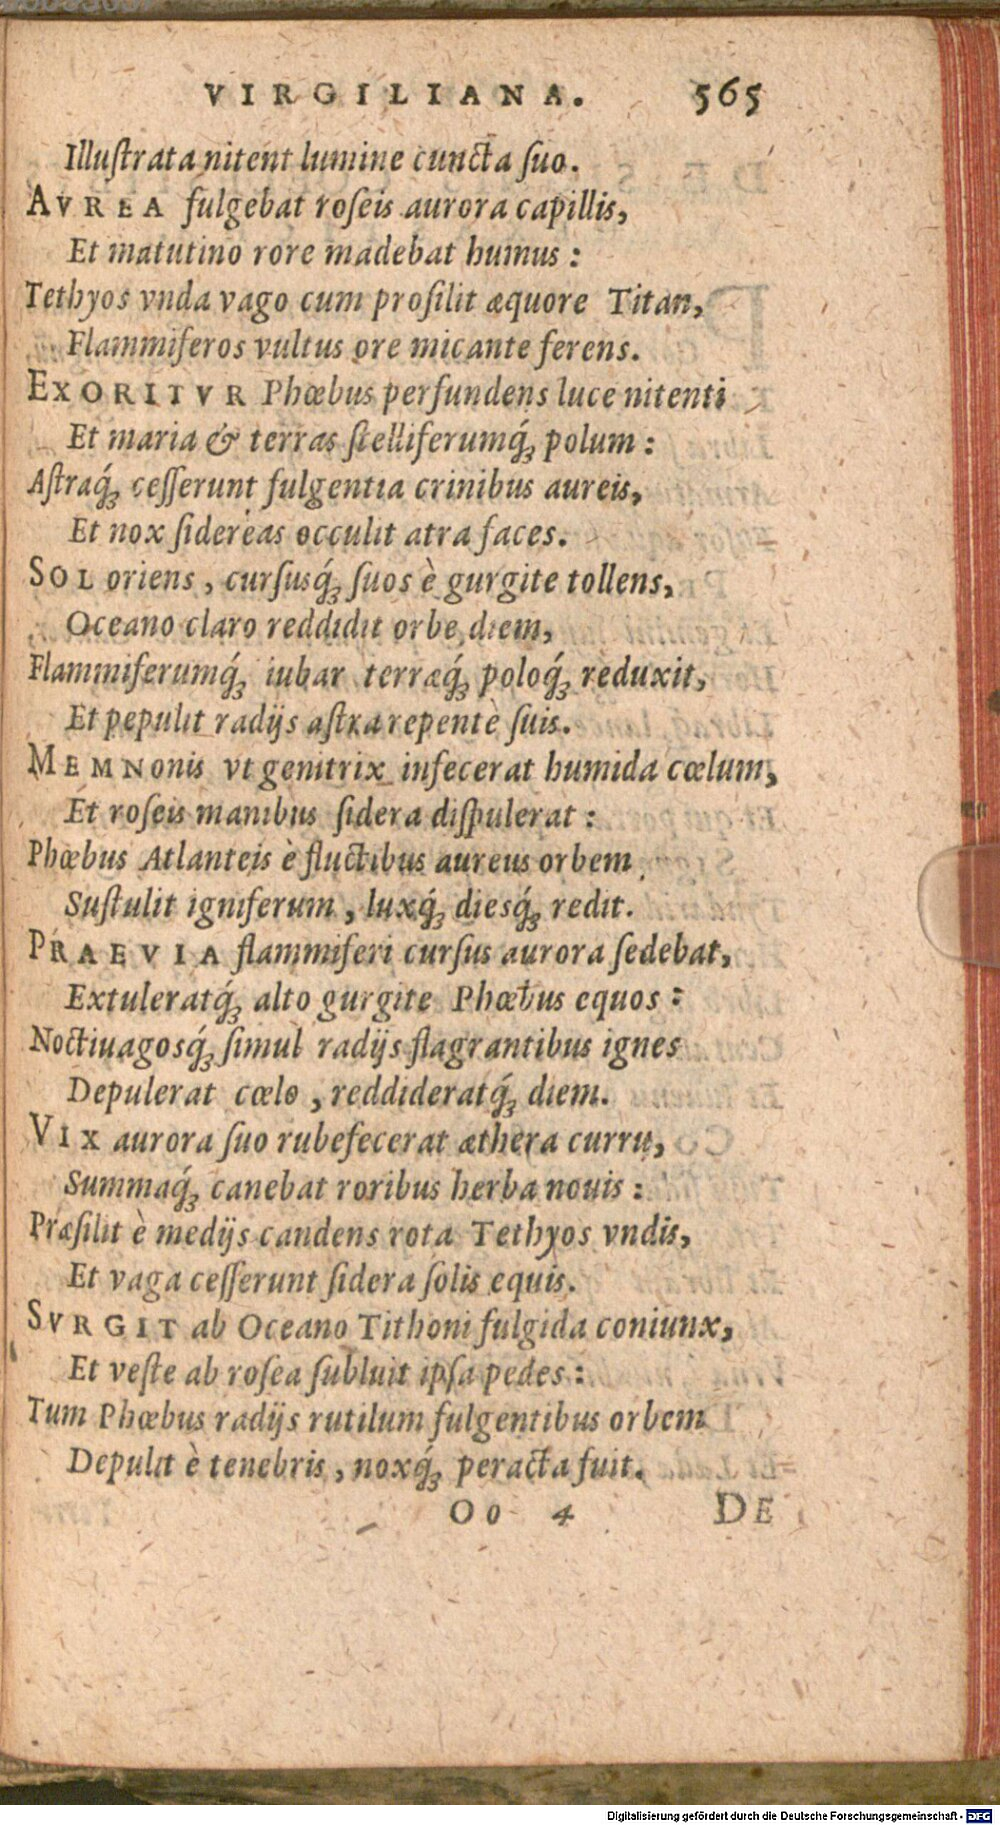 VIRGILIANA. 565
Illuſtrata nitent lumine cuncta ſuo.
AVREA fulgebat roſeis aurora capillis,
Et matutino rore madebat humus:
Tethyos vnda vago cum proſilit æquore Titan,
Flammiferos vultus ore micante ferens.
EXORITVR Phœbus perfundens luce nitenti
Et maria & terras ſtelliferumq́ꝫ polum:
Aſtraq́ꝫ ceſſerunt fulgentia crinibus aureis,
Et nox ſidereas occulit atra faces.
SOL oriens, curſusq́ꝫ ſuos è gurgite tollens,
Oceano claro reddidit orbe diem,
Flammiferumq́ꝫ iubar terræq́ꝫ poloq́ꝫ reduxit,
Et pepulit radijs aſtra repentè ſuis.
MEMNonis vt genitrix infecerat humida cœlum,
Et roſeis manibus ſidera diſpulerat:
Phœbus Atlanteis è fluctibus aureus orbem
Suſtulit igniferum, luxq́ꝫ diesq́ꝫ redit.
PRAEVIA flammiferi curſus aurora ſedebat,
Extuleratq́ꝫ alto gurgite Phœbus equos:
Noctiuagosq́ꝫ ſimul radijs flagrantibus ignes
Depulerat cœlo, reddideratq́ꝫ diem.
VIX aurora ſuo rubefecerat æthera curru,
Summaq́ꝫ canebat roribus herba nouis:
Præſilit è medijs candens rota Tethyos vndis,
Et vaga ceſſerunt ſidera ſolis equis.
SVRGIT ab Oceano Tithoni fulgida coniunx,
Et veſte ab roſea ſubluit ipſa pedes:
Tum Phœbus radijs rutilum fulgentibus orbem
Depulit è tenebris, noxq́ꝫ peracta fuit.
Oo 4 DE
Digitalisierung gefördert durch die Deutsche Forschungsgemeinschaft - DFG